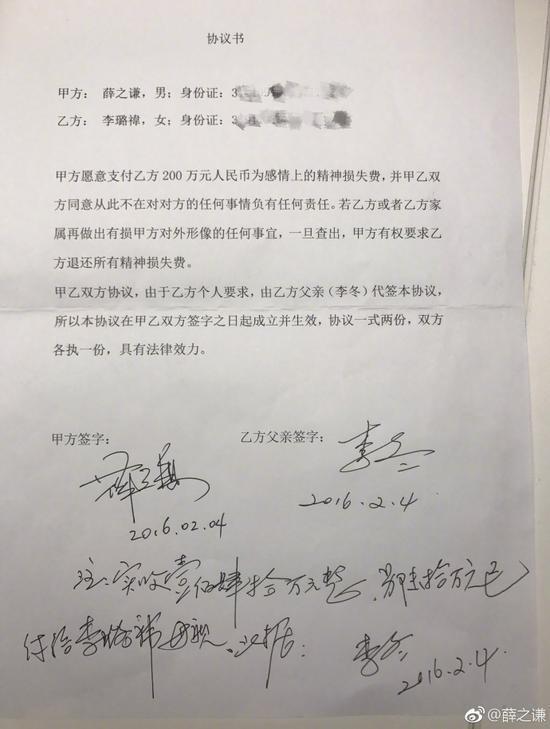 协议书
甲方： 薛之谦，男；身份证：3
乙方： 李璐禕，女；身份证：3
甲方愿意支付乙方 200 万元人民币为感情上的精神损失费，并甲乙双
方同意从此不在对对方的任何事情负有任何责任。若乙方或者乙方家
属再做出有损甲方对外形像的任何事宜，一旦查出，甲方有权要求乙
方退还所有精神损失费。
甲乙双方协议，由于乙方个人要求，由乙方父亲（李冬）代签本协议，
所以本协议在甲乙双方签字之日起成立并生效，协议一式两份，双方
各执一份，具有法律效力。
甲方签字： 乙方父亲签字：
薛之谦 李冬
2016.02.04 2016.2.4
注：实收壹佰肆拾万元整，陆拾万元已
付给李璐禕母亲。收据： 李冬
2016.2.4
@薛之谦